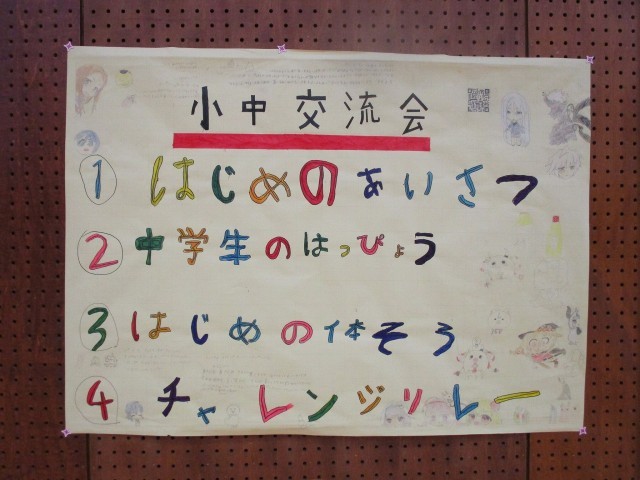 小中交流会
1 はじめのあいさつ
2 中学生のはっぴょう
3 はじめの体そう
4 チャレンジリレー